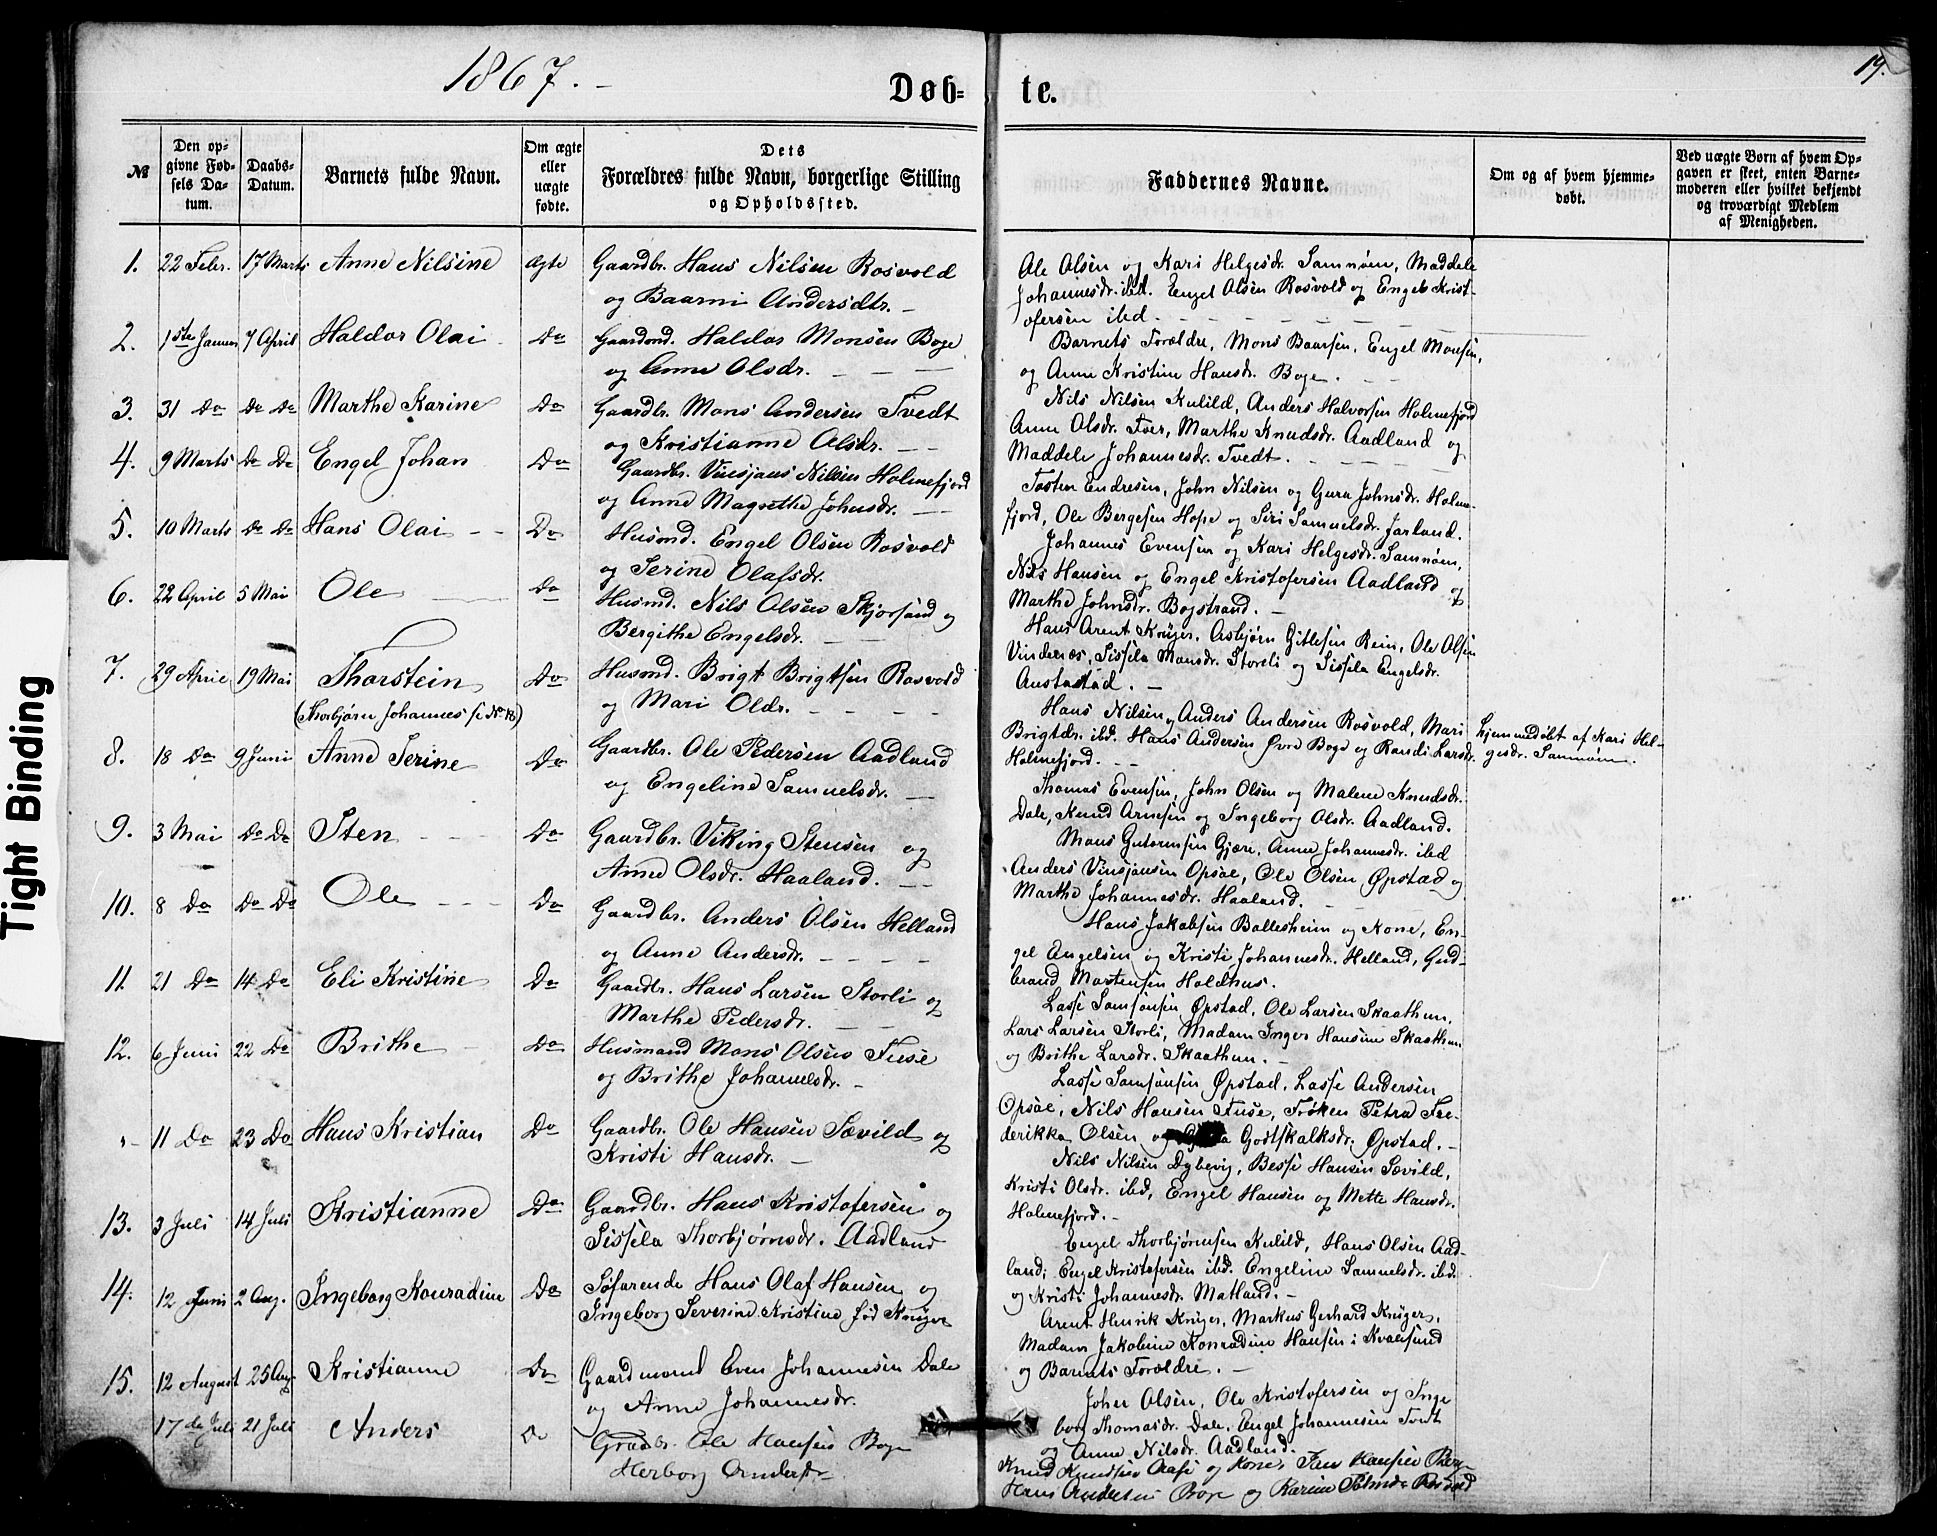 1867. -
Døb-
te.
19.
Tight Binding
№
Den op-
givne Fød-
sels Da-
tum.
Daabs-
Datum.
Barnets fulde Navn.
Om ægte
eller
uægte
fødte.
Dets
Forældres fulde Navn, borgerlige Stilling
og Opholdssted.
Faddernes Navne.
Om og af hvem hjemme-
døbt.
Ved uægte Børn af hvem Op-
gaven er skeet, enten Barne-
moderen eller hvilket bekjendt
og troværdigt Medlem
af Menigheden.
1. 22 Febr. 17 Marts Anne Nilsine ægte Gaardbr. Hans Nilsen Rosvold
og Baarni Andersdtr. -
Ole Olsen og Kari Helgesdr. Samnøen, Maddele
Johannesdr. ibd. Engel Olsen Rosvold og Engel Krist-
ofersen ibd.
2. 1ste Januar 7 April Haldor Olai Do Gaardmd. Haldor Monsen Boge
og Anne Olsdr. - - -
Barnets Forældre, Mons Baarsen, Engel Monsen,
og Anne Kristine Hansdr. Boge.
3. 31 Do Do Do Marthe Karine Do Gaardbr. Mons Andersen Tvedt
og Kristianne Olsdr. - -
Nils Nilsen Kulild, Anders Halvorsen Holmefjord
Anne Olsdr. Fuse, Marthe Knudsdr. Aadland og
Maddele Johannesdr. Tvedt.
4. 9 Marts Do Do Engel Johan Do Gaardbr. Vinsjans Nilsen Holmefjord
og Anne Magrethe Johnsdr. -
Tosten Endresen, John Nilsen og Gura Johnsdr. Holme-
fjord, Ole Bergesen Hope og Siri Samuelsdr. Jarland.
5. 10 Marts Do Do Hans Olai - - Do Husmd. Engel Olsen Rosvold
og Serine Olafsdr.
Johannes Evensen og Kari Helgesdr. Samnøen,
Nils Hansen og Engel Kristofersen Aadland og
Marthe Johnsdr. Bogstrand. -
6. 22 April 5 Mai Ole Do Husmd. Nils Olsen Skjørsand og
Bergithe Engelsdr. - -
Hans Arent Krüger, Asbjørn Gitlesen Rein, Ole Olsen
Vindenes, Sissela Monsdr. Storeli og Sissela Engelsdr.
Austastad. -
7. 29 April 19 Mai Thorstein Do Husmd. Brigt Brigtsen Rosvold
(Thorbjørn Johannes se No 18)
og Mari Oldr. - - - -
Hans Nilsen, Anders Andersen Rosvold, Mari
Brigtdr. ibd. Hans Andersen Øvre Boge og Randi Larsdr.
Holmefjord. - -
hjemmedøbt af Kari Hel-
gesdr. Samnøen.
8. 18 Do 9 Juni Anne Serine Do Gaardbr. Ole Pedersen Aadland
og Engeline Samuelsdr. -
Thomas Evensen, John Olsen og Malene Knudsdr.
Dale, Knud Arnesen og Ingeborg Olsdr. Aadland.
9. 3 Mai Do Do Sten - - Do Gaardbr. Viking Stensen og
Anne Olsdr. Haaland. - -
Mons Gutormsen Gjøre, Anne Johannesdr. ibd
Anders Vinsjansen Opsae, Ole Olsen Øpstad og
Marthe Johannesdr. Haaland. -
10. 8 Do Do Do Ole - - Do Gaardbr. Anders Olsen Helland
og Anne Andersdr. - - - -
Hans Jakobsen Ballesheim og Kone, En-
gel Engelsen og Kristi Johannesdr. Helland, Gud-
brand Mortensen Holdhus.
11. 21 Do 14 Do Eli Kristine Do Gaardbr. Hans Larsen Storli og
Marthe Pedersdr. - -
Lasse Samsonsen Øpstad, Ole Larsen Skaathun,
Lars Larsen Storli, Madam Inger Hansine Skaathun
og Brithe Larsdr. Skaathun. -
12. 6 Juni 22 Do Brithe - Do Husmand Mons Olsens Fuse
og Brithe Johannesdr. -
Lasse Samsonsen Øpstad, Lasse Andersen
Opsae, Nils Hansen Fuse, Frøken Petra Fre-
derikke Olsen og Godtskalksdr. Øpstad. -
"- 11 Do 23 Do Hans Kristian Do Gaardbr. Ole Hansen Sævild og
Kristi Hansdr. -
Nils Nilsen Dybevig, Besse Hansen Sævild,
Kristi Olsdr. ibd, Engel Hansen og Mette Hansdr.
Holmefjord. -
13. 3 Juli 14 Juli Kristianne Do Gaardbr. Hans Kristofersen og
Sissela Thorbjørnsdr. Aadland
Engel Thorbjørnsen Kulild, Hans Olsen Aad-
land; Engel Kristofersen ibd. Engeline Samuelsdr. ibd.
og Kristi Johannesdr. Matland. -
14. 12 Juni 2 Aug. Ingeborg Konradine Do Søfarende Hans Olaf Hansen og
Ingeborg Severine Kristine fød Krüger
Arent Henrik Krüger, Markus Gerhard Krüger,
Madam Jakobine Konradine Hansen i Kvalesund
og Barnets Forældre. -
15. 12 August 25 Aug Kristianne Do Gaardmand Even Johannesen Dale
og Anne Johannesdr.
John Olsen, Ole Kristofersen og Inge
borg Thomasdr. Dale, Engel Johannesen Tvedt
og Anne Nilsdr. Aadland.
17de Juli 21 Juli Anders Do Grdbr. Ole Hansen Boge
Herborg Andersdr
Knud Knudsen og Kone,
Hans Andersen Boge og Karine